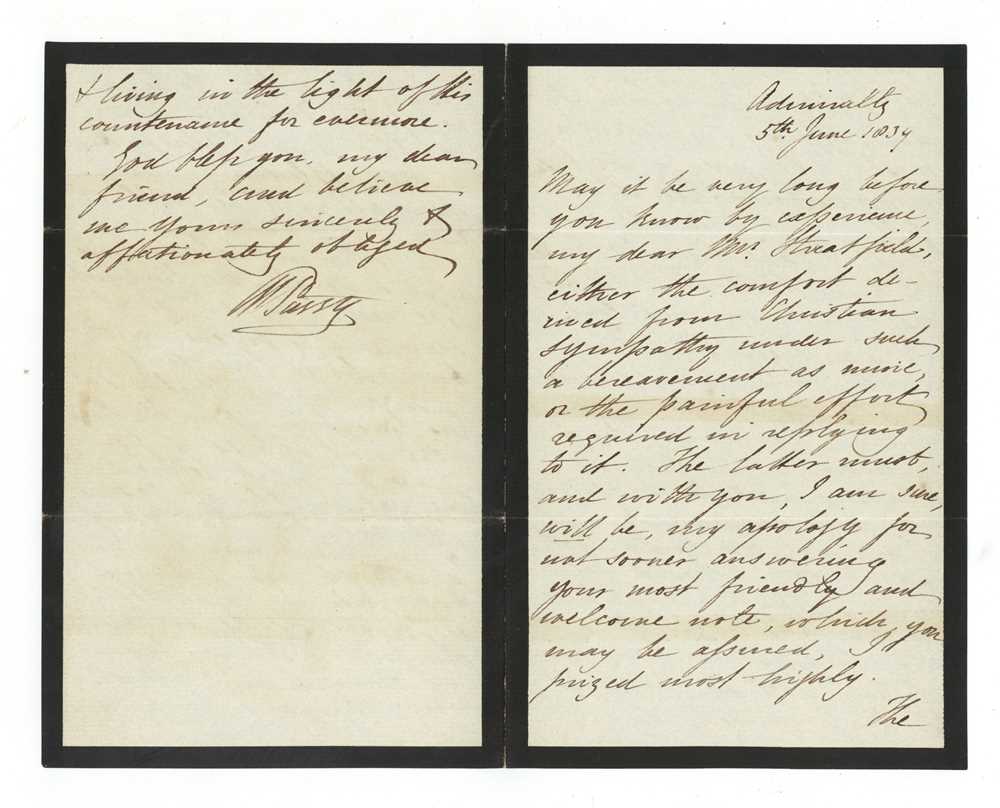 Admiralty
5th June 1839
May it be very long before
you know by experience,
my dear Mr. Streatfield,
either the comfort de-
rived from Christian
sympathy under such
a bereavement as mine,
or the painful effort
required in replying
to it. The latter must,
and with you, I am sure,
will be, my apology for
not sooner answering
your most friendly and
welcome note, which, you
may be assured, I
prized most highly.
The
& living in the light of His
countenance for evermore.
God bless you, my dear
friend, and believe
me yours sincerely &
affectionately obliged
WEParry